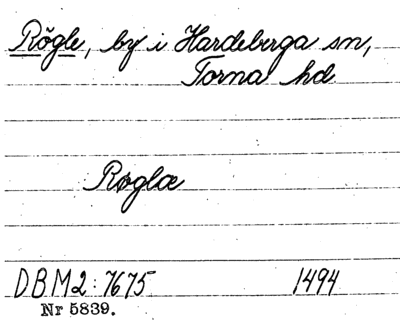 Rögle, by i Hardeberga sn,
Torna hd
Røglæ
DBM2:7675 1494
Nr 5839.